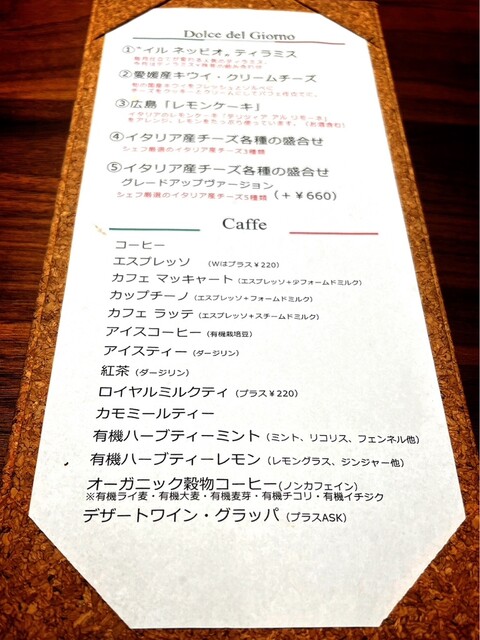 Dolce del Giorno
①"イル ネッビオ„ ティラミス
②愛媛産キウイ・クリームチーズ
③広島「レモンケーキ」
④イタリア産チーズ各種の盛合せ
シェフ厳選のイタリア産チーズ3種類
⑤イタリア産チーズ各種の盛合せ
グレードアップヴァージョン
シェフ厳選のイタリア産チーズ5種類(+¥660)
Caffe
コーヒー
エスプレッソ (Wはプラス¥220)
カフェ マッキャート(エスプレッソ+少フォームドミルク)
カップチーノ(エスプレッソ+フォームドミルク)
カフェ ラッテ(エスプレッソ+スチームドミルク)
アイスコーヒー(有機栽培豆)
アイスティー(ダージリン)
紅茶(ダージリン)
ロイヤルミルクティ(プラス¥220)
カモミールティー
有機ハーブティーミント(ミント、リコリス、フェンネル他)
有機ハーブティーレモン(レモングラス、ジンジャー他)
オーガニック穀物コーヒー(ノンカフェイン)
※有機ライ麦・有機大麦・有機麦芽・有機チコリ・有機イチジク
デザートワイン・グラッパ(プラスASK)